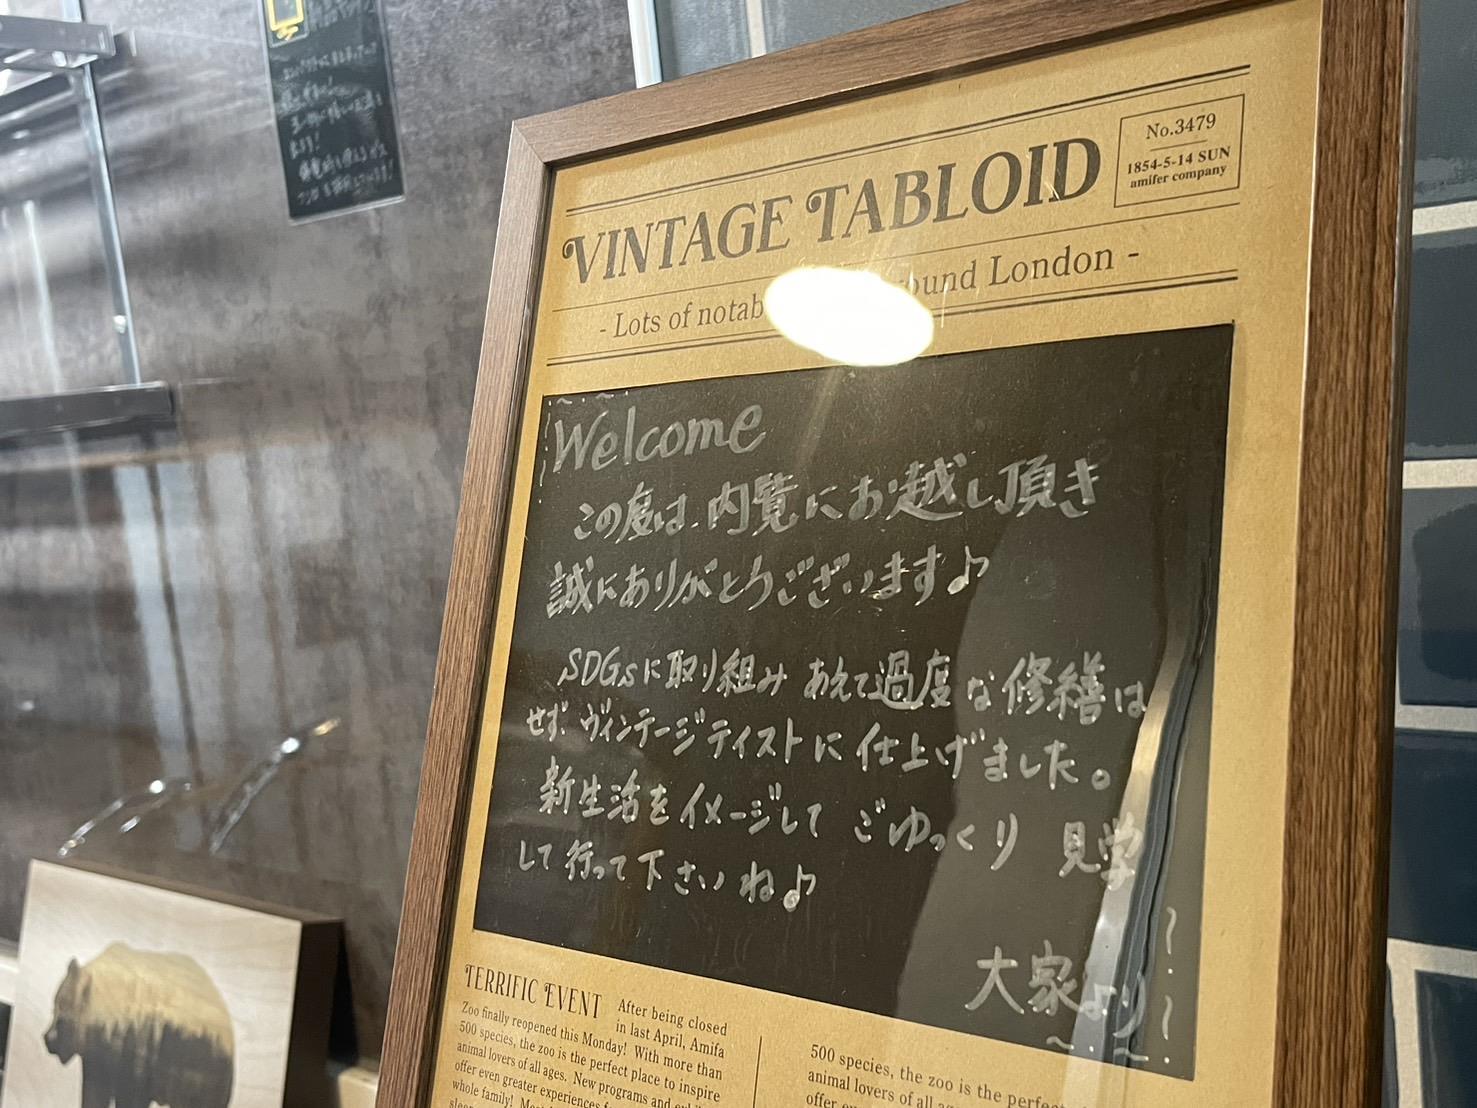 VINTAGE TABLOID
No.3479
1854-5-14 SUN
amifer company
- Lots of notab ound London -
Welcome
この度は、内覧にお越し頂き
誠にありがとうございます♪
SDGsに取り組み あえて過度な修繕は
せず、ヴィンテージテイストに仕上げました。
新生活をイメージして ごゆっくり 見学
して行って下さいね♪
大家より
TERRIFIC EVENT
After being closed
in last April, Amifa
Zoo finally reopened this Monday! With more than
500 species, the zoo is the perfect place to inspire
animal lovers of all ages. New programs and
offer even greater experiences
whole family!
500 species, the zoo is the perfect
animal lovers of all
offer